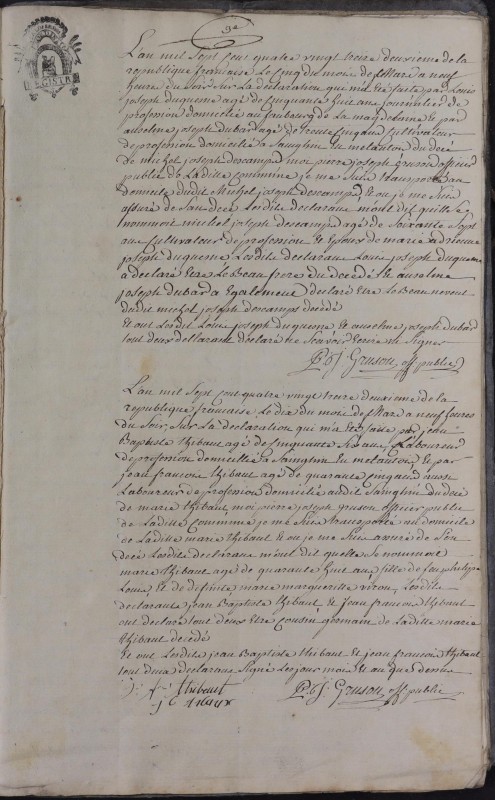 9e
L'an mil Sept Cent quatre vingt treize deuxieme de la
republique francaise Le cinq du mois de Mars a neuf
heure du Soir Sur La declaration qui ma Ete faite par Louis
joseph duquesne agé de Cinquante huit ans journalier de
profession domicilié au faubourg de La magdelenne Et par
anselme joseph dubar agé de trente Cinq ans Cultivateur
de profession domicilié a Sainghin En melantois du décé
de michel joseph descamps moi pierre joseph Gruson officier
public de Laditte commune je me Suis transporté au
domicile dudit Michel joseph descamps Et ou je me Suis
assuré de Son décé Lesdits declarans m'ont dit quil Se
nommoit michel joseph descamps agé de Soixante Sept
ans Cultivateur de profession Et Epoux de marie adrienne
joseph duquesne Lesdits declarans Louis joseph duquesne
a declaré Etre Le Beau frere du décédé Et anselme
joseph dubar a Egalement declaré Etre Le Beau neveut
dudit michel joseph descamps décédé
Et ont Lesdit Louis joseph duquesne Et anselme joseph dubar
tout deux declarant declaré ne Scavoir Ecrire ni Signer
P. J. Gruson, off public
L'an mil Sept Cent quatre vingt treize deuxieme de la
republique francaise Le dix du mois de Mars a neuf heures
du Soir, Sur La declaration qui m'a Eté faite par jean
Baptiste thibaut agé de Cinquante Six ans, Laboureur
de profession domicilié a Sainghin En melantois, Et par
jean francois thibaut agé de quarante Cinq ans aussi
Laboureur de profession domicilié audit Sainghin du décé
de marie thibaut, moi pierre joseph gruson officier public
de Laditte Commune je me Suis transporté au domicile
de Laditte marie thibaut Et ou je me Suis assuré de Son
décé Lesdits declarans m'ont dit quelle Se nommoit
marie thibaut agé de quarante huit ans fille de feu philippe
Louis, Et de defünte marie margueritte virou, Lesdits
declarants jean Baptiste thibaut, Et jean francois thibaut
ont declaré tout deux Etre Cousin germain de Laditte marie
thibaut décédé
Et ont Lesdits jean Baptiste thibaut Et jean francois thibaut
tout deux declarans Signé Les jour mois Et an que dessus
j: f: thibaut P. J. Gruson, off public